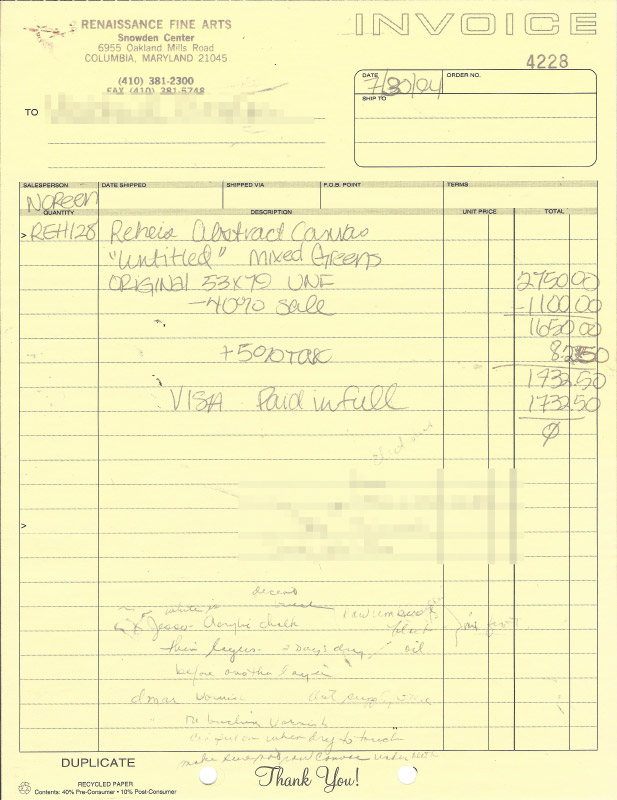 RENAISSANCE FINE ARTS
INVOICE
Snowden Center
6955 Oakland Mills Road
COLUMBIA, MARYLAND 21045
4228
(410) 381-2300
FAX (410) 381-5748
DATE 7/30/94 ORDER NO.
SHIP TO
TO
SALESPERSON DATE SHIPPED SHIPPED VIA F.O.B. POINT TERMS
NOREEN
QUANTITY DESCRIPTION UNIT PRICE TOTAL
> REH128 Reheis Abstract Canvas
"Untitled" Mixed Greens
ORIGINAL 53X79 UNF 2750.00
-40% sale -1100.00
1650.00
+5% tax 82.50
1732.50
VISA Paid in full 1732.50
Ø
>
white
Jesso - Acrylic chalk
thin layers - days dry oil
before another layer
varnish art supply store
varnish
when dry to touch
make sure canvas
DUPLICATE
RECYCLED PAPER
Contents: 40% Pre-Consumer • 10% Post-Consumer
Thank You!